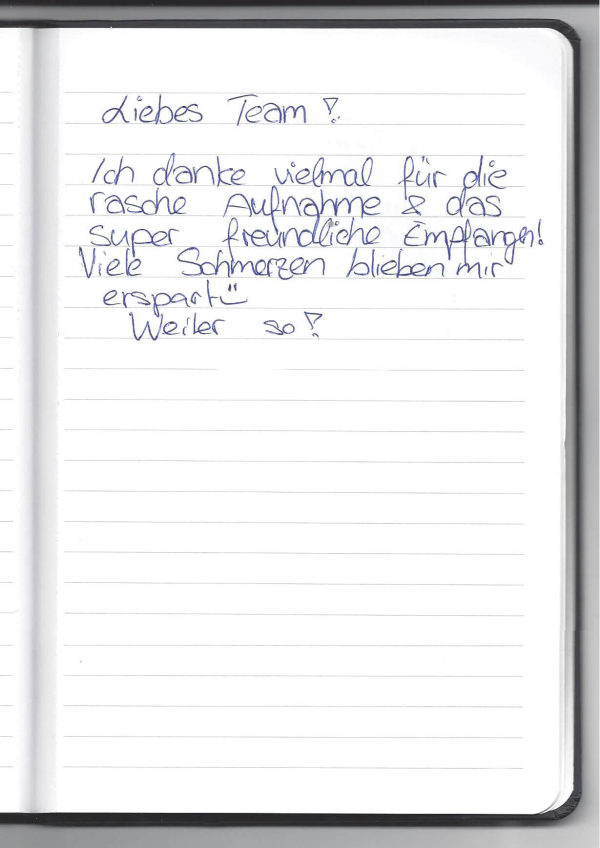 Liebes Team!
Ich danke vielmal für die
rasche Aufnahme & das
super freundliche Empfangen!
Viele Schmerzen blieben mir
erspart ü
Weiter so!